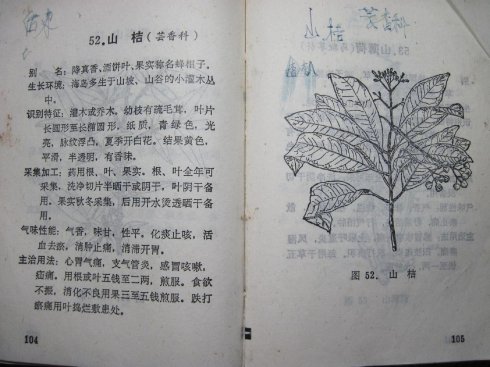 52.山 桔（芸香科）
别 名：降真香、酒饼叶、果实称名蜂柑子。
生长环境：海岛多生于山坡、山谷的小灌木丛
中。
识别特征：灌木或乔木，幼枝有疏毛茸，叶片
长圆形至长椭圆形，纸质，青绿色，光
亮，脉纹浮凸，夏季开白花，结果黄色，
平滑，半透明，有香味。
采集加工：药用根、叶、果实。根、叶全年可
采集，洗净切片半晒干或阴干，叶阴干备
用。果实秋冬采集，后用开水烫透晒干备
用。
气味性能：气香，味甘，性平。化痰止咳，活
血去瘀，消肿止痛，消滞开胃。
主治用法：心胃气痛，支气管炎，感冒咳嗽，
疝痛，用根或叶五钱至二两，煎服。食欲
不振，消化不良用果三至五钱煎服。跌打
瘀痛用叶捣烂敷患处。
104
山桔 芸香科
图 52. 山 桔
105